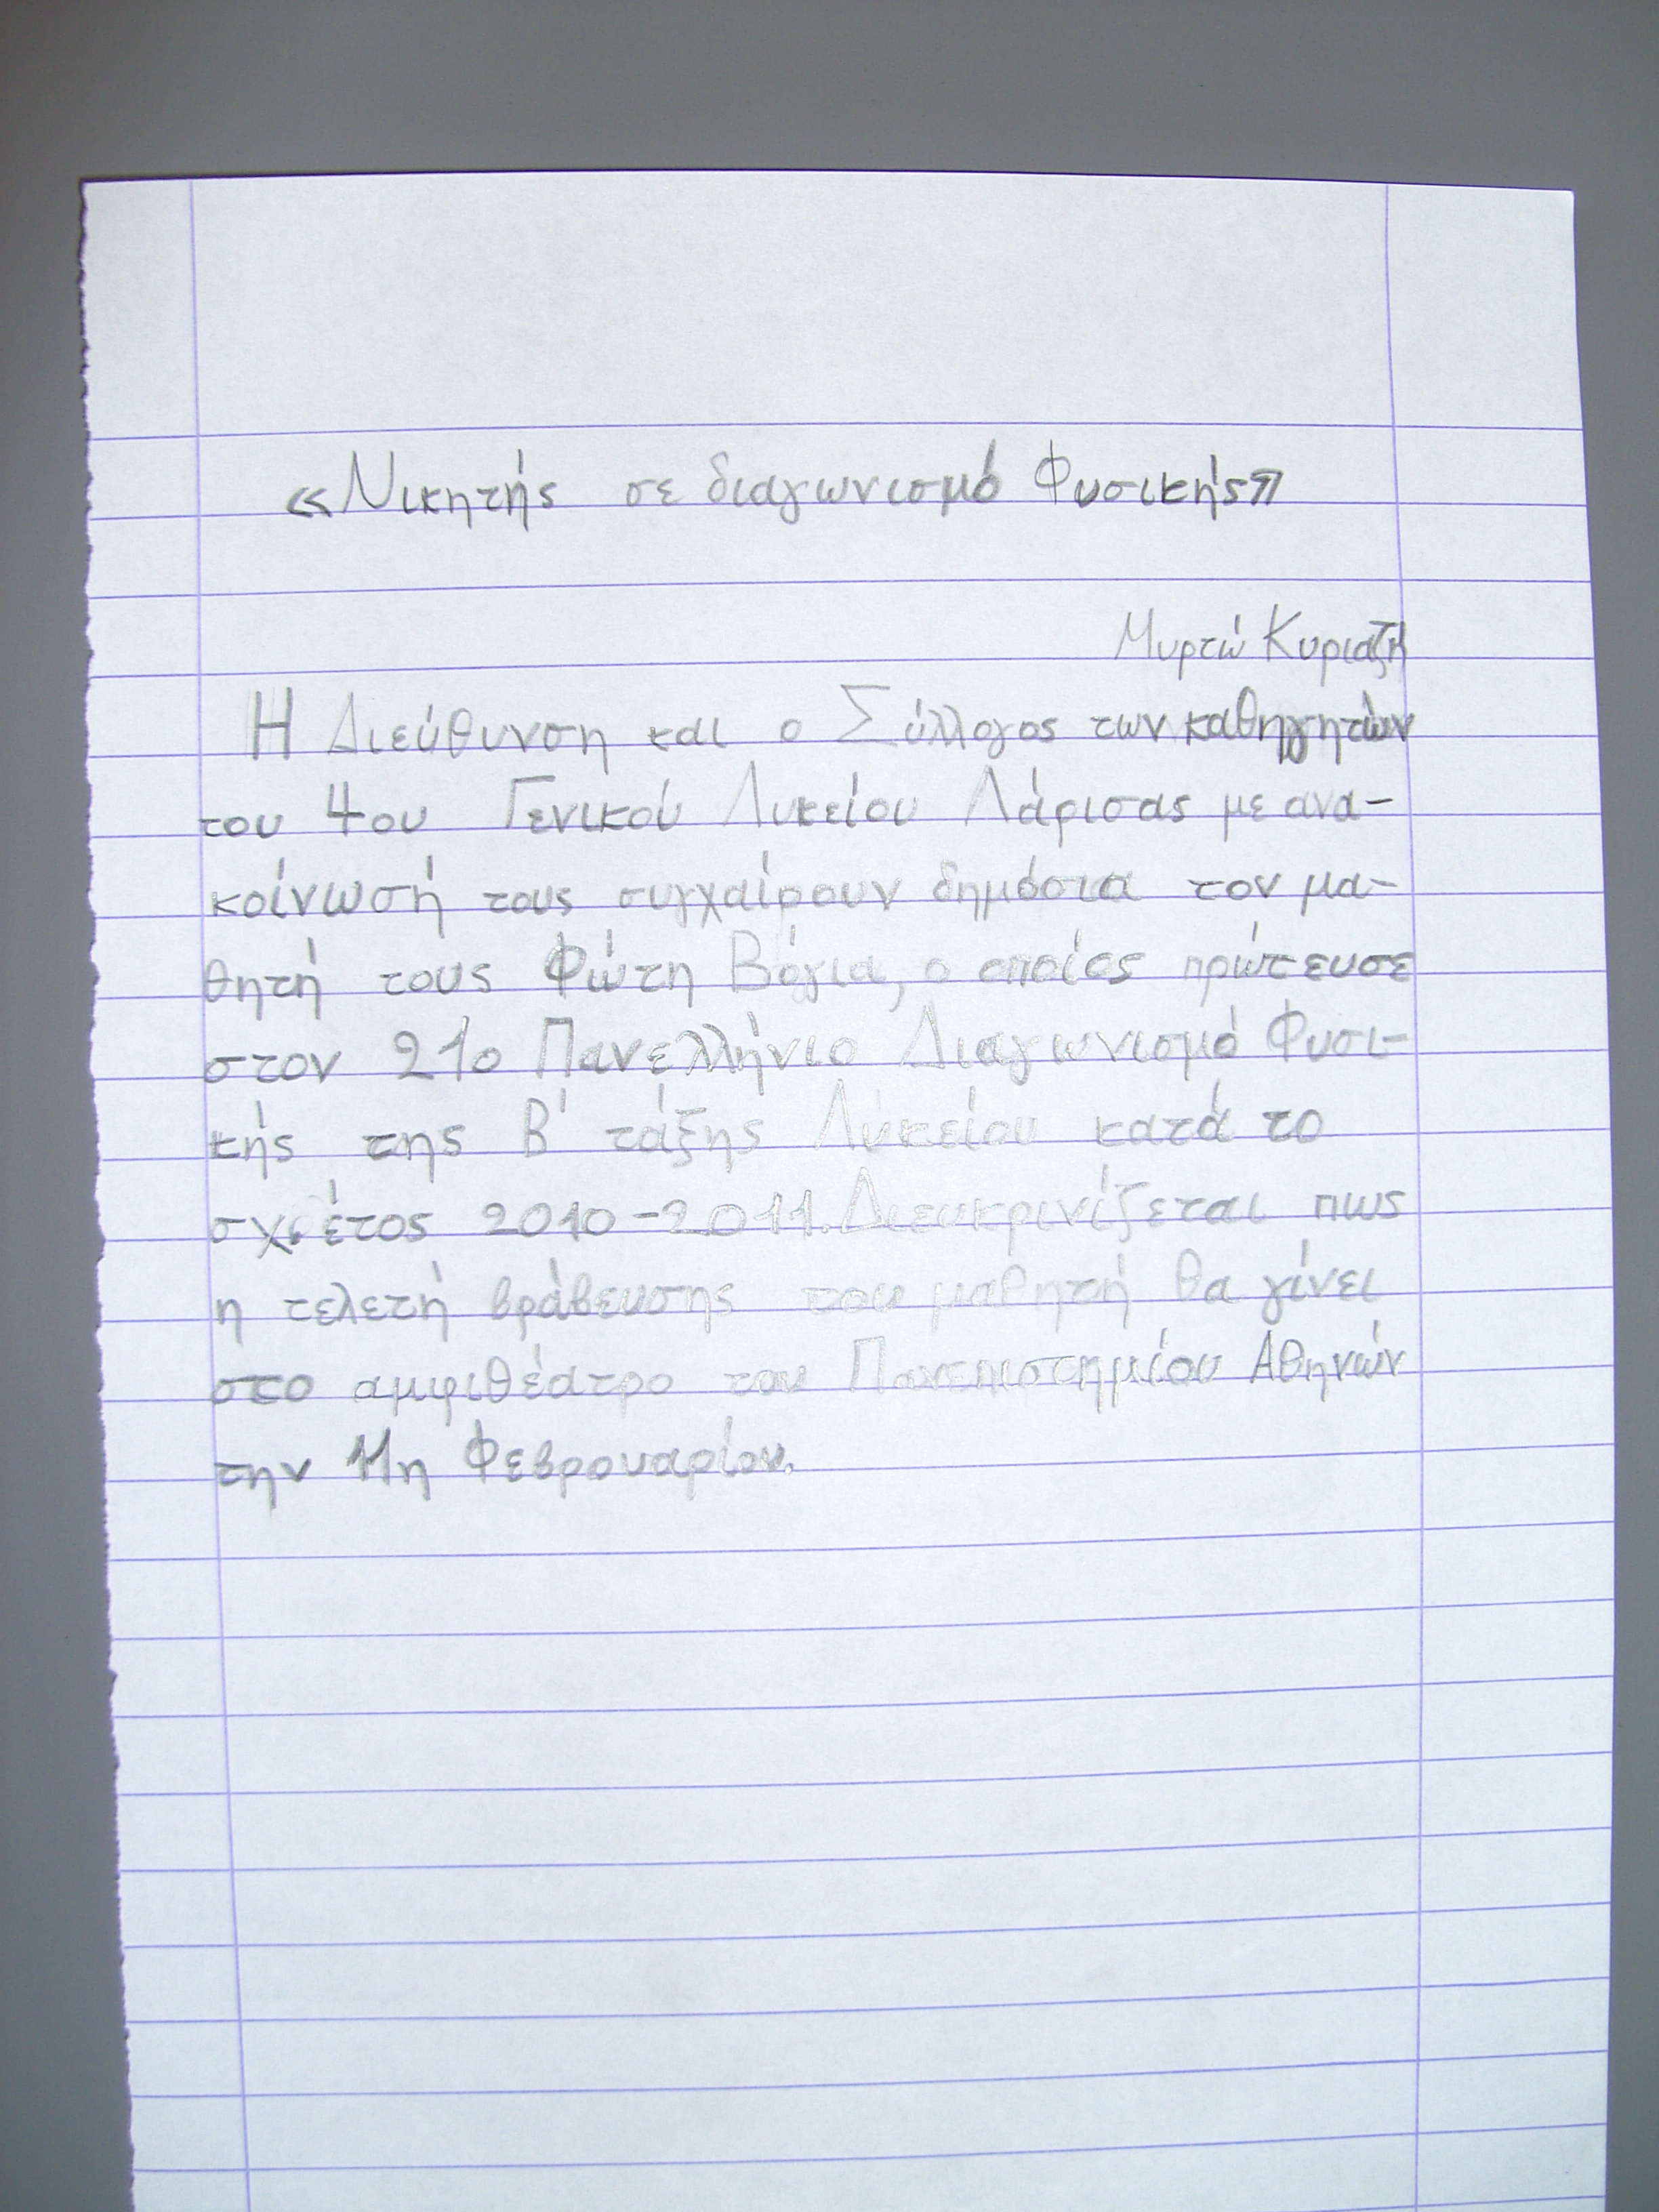 «Νικητής σε διαγωνισμό Φυσικής»
Μυρτώ Κυριαζή
Η Διεύθυνση και ο Σύλλογος των καθηγητών
του 4ου Γενικού Λυκείου Λάρισας με ανα-
κοίνωσή τους συγχαίρουν δημόσια τον μα-
θητή τους Φώτη Βόγια, ο οποίος πρώτευσε
στον 21ο Πανελλήνιο Διαγωνισμό Φυσι-
κής της Β' τάξης Λυκείου κατά το
σχ. έτος 2010-2011. Διευκρινίζεται πως
η τελετή βράβευσης του μαθητή θα γίνει
στο αμφιθέατρο του Πανεπιστημίου Αθηνών
την 11η Φεβρουαρίου.